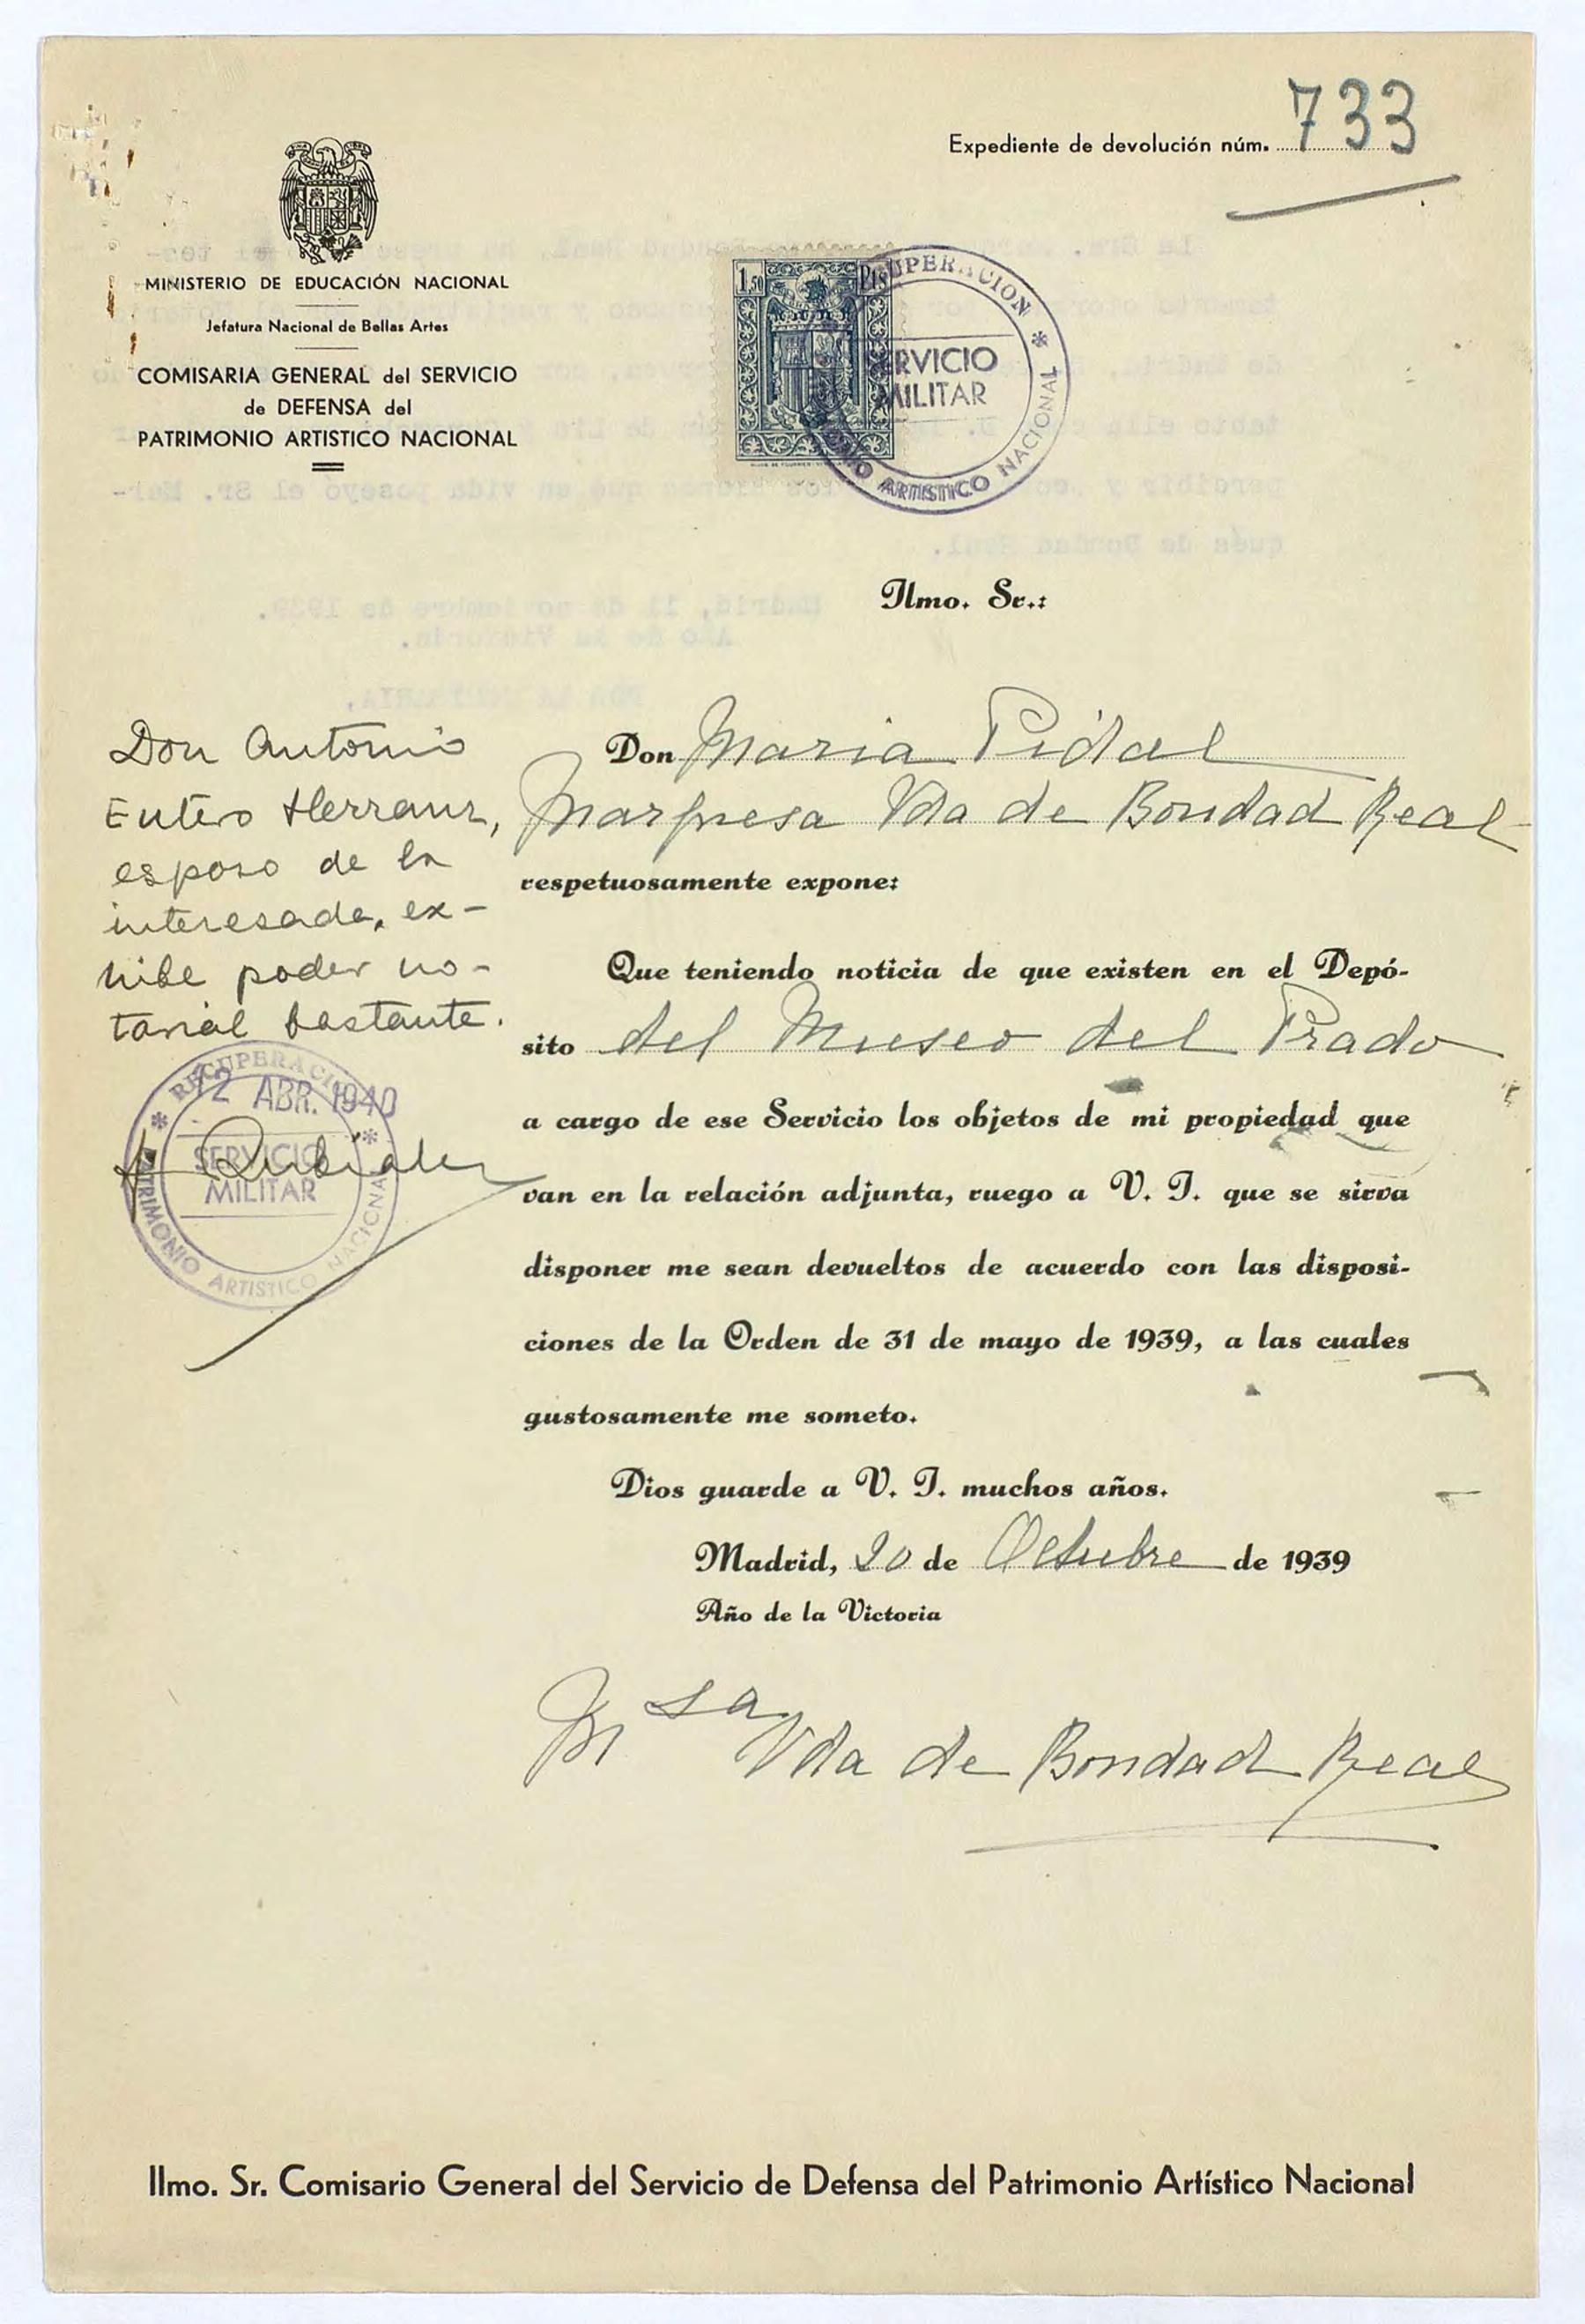 Expediente de devolución núm. 733
MINISTERIO DE EDUCACIÓN NACIONAL
Jefatura Nacional de Bellas Artes
COMISARIA GENERAL del SERVICIO
de DEFENSA del
PATRIMONIO ARTISTICO NACIONAL
1,50 Pts
SERVICIO
MILITAR
ARTISTICO NACIONAL
Ilmo. Sr.:
Don Maria Pidal
Marquesa Vda de Bondad Real
respetuosamente expone:
Que teniendo noticia de que existen en el Depó-
sito del Museo del Prado
a cargo de ese Servicio los objetos de mi propiedad que
van en la relación adjunta, ruego a V. I. que se sirva
disponer me sean devueltos de acuerdo con las disposi-
ciones de la Orden de 31 de mayo de 1939, a las cuales
gustosamente me someto.
Dios guarde a V. I. muchos años.
Madrid, 20 de Octubre de 1939
Año de la Victoria
Msa Vda de Bondad Real
Don Antonio
Entero Herranz,
esposo de la
interesada, ex-
hibe poder no-
tarial bastante.
RECUPERACION
12 ABR. 1940
SERVICIO
MILITAR
PATRIMONIO ARTISTICO NACIONAL
Ilmo. Sr. Comisario General del Servicio de Defensa del Patrimonio Artístico Nacional